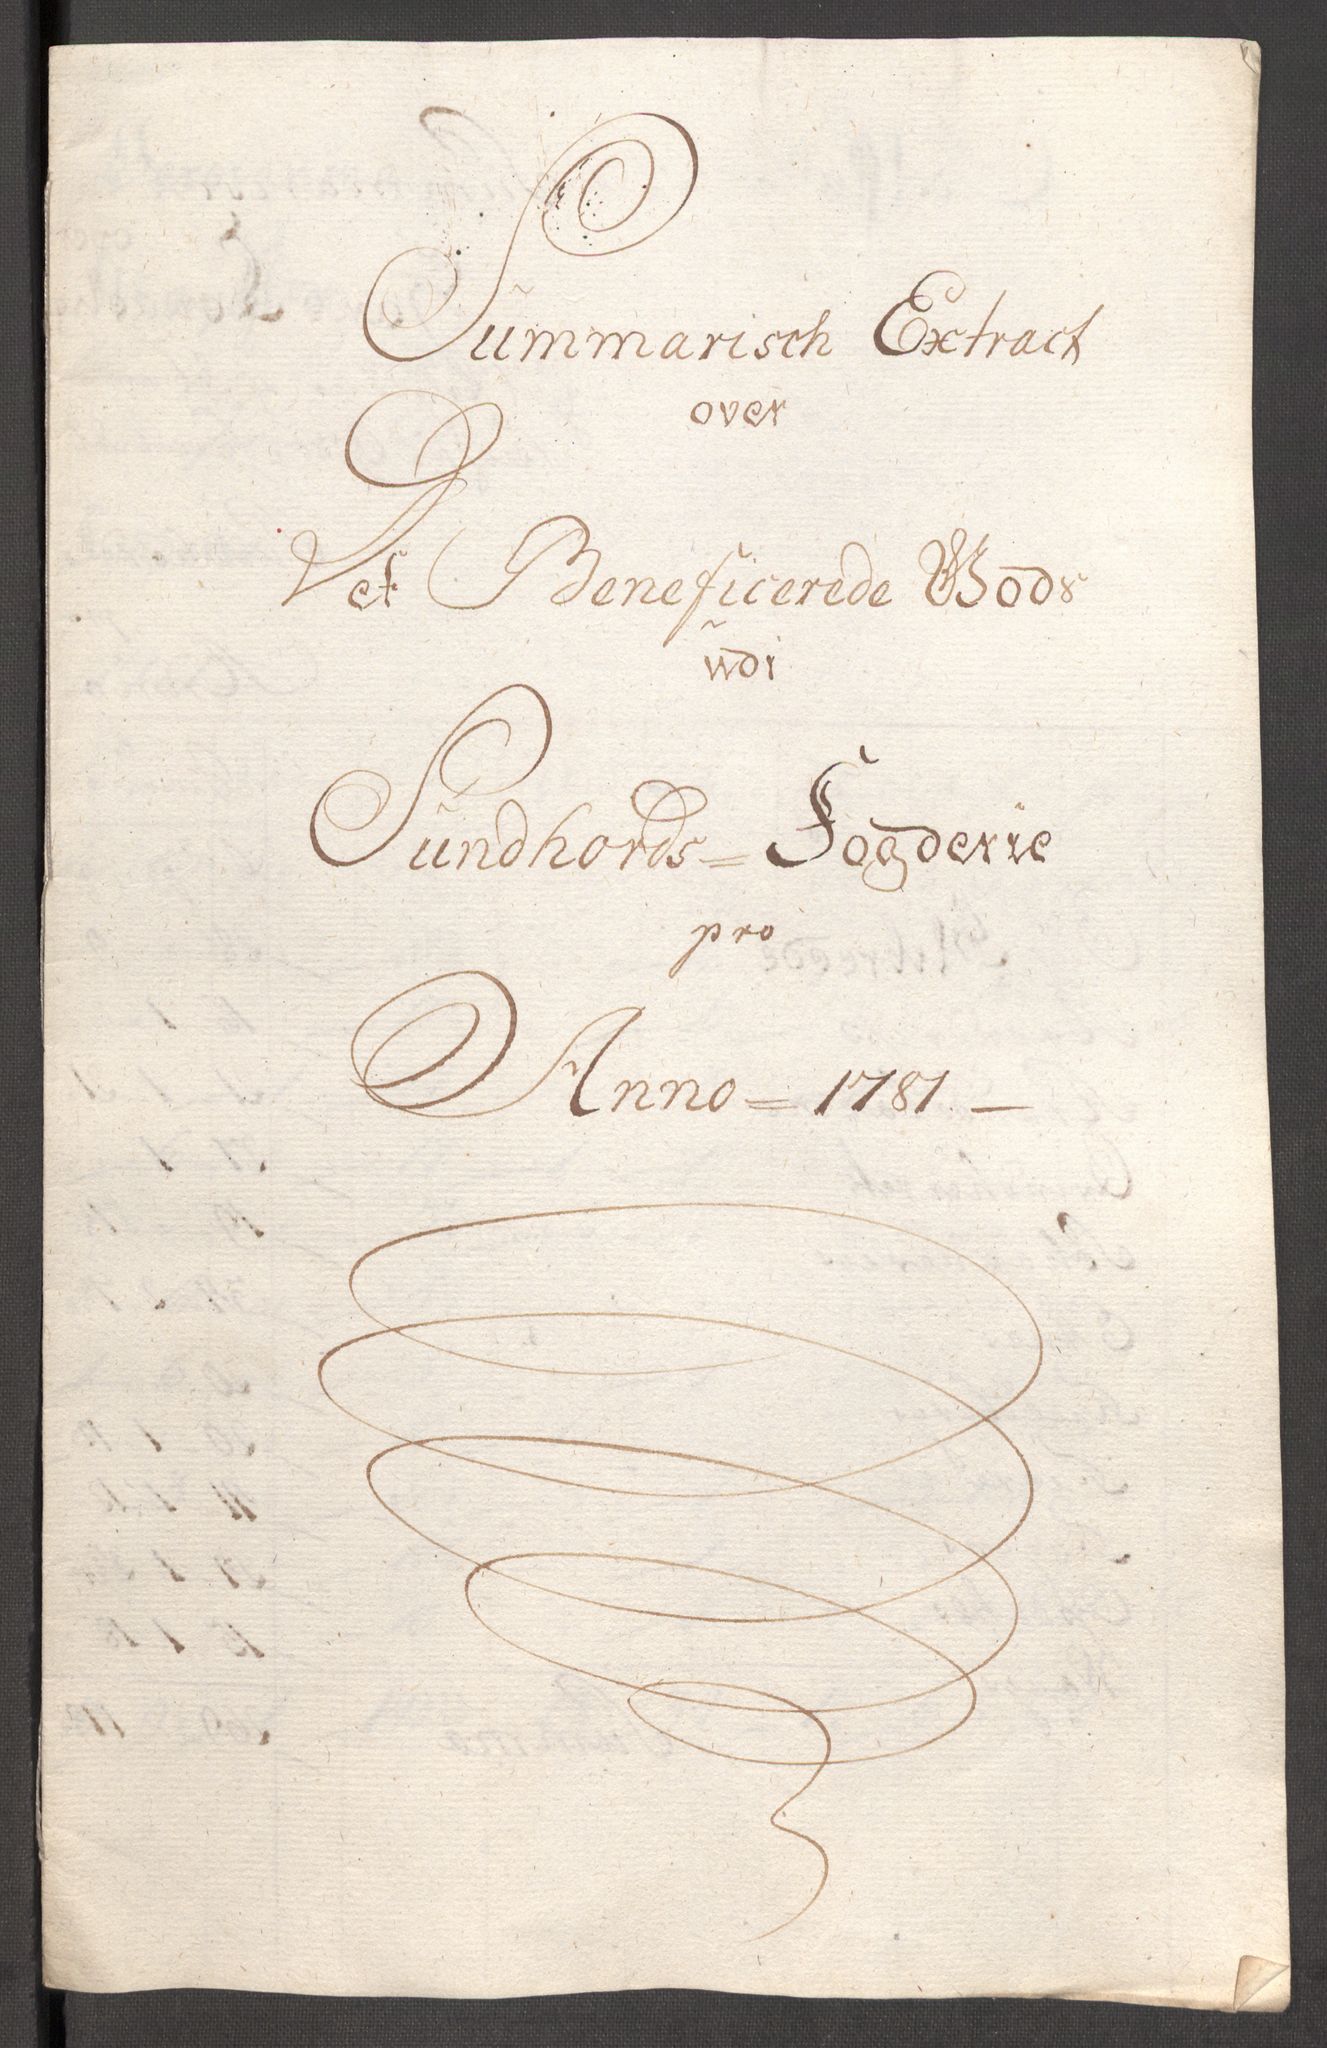 Summarisch Extract
over
Det Beneficerede Gods
udi
Sundhords = Fogderie
pro
Anno = 1781. —